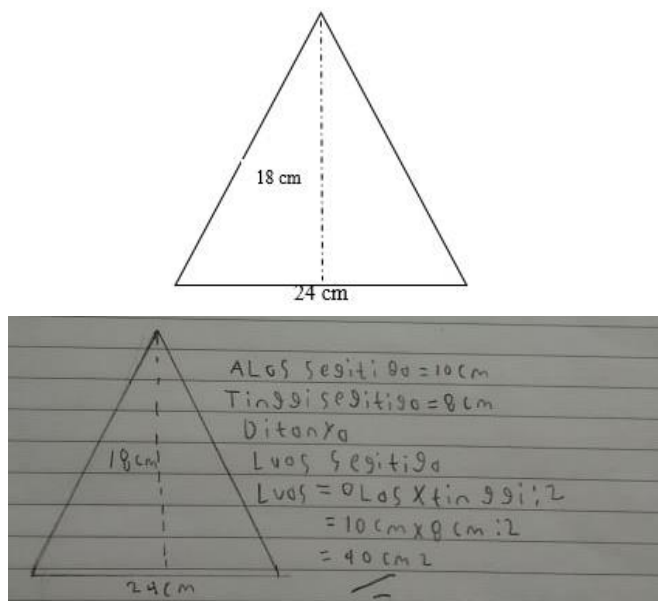 18 cm
24 cm
ALas segitiga = 10 cm
Tinggi segitiga = 8 cm
Ditanya
18 cm
Luas segitiga
Luas = aLas x tinggi : 2
= 10 cm x 8 cm : 2
= 40 cm 2
24 cm